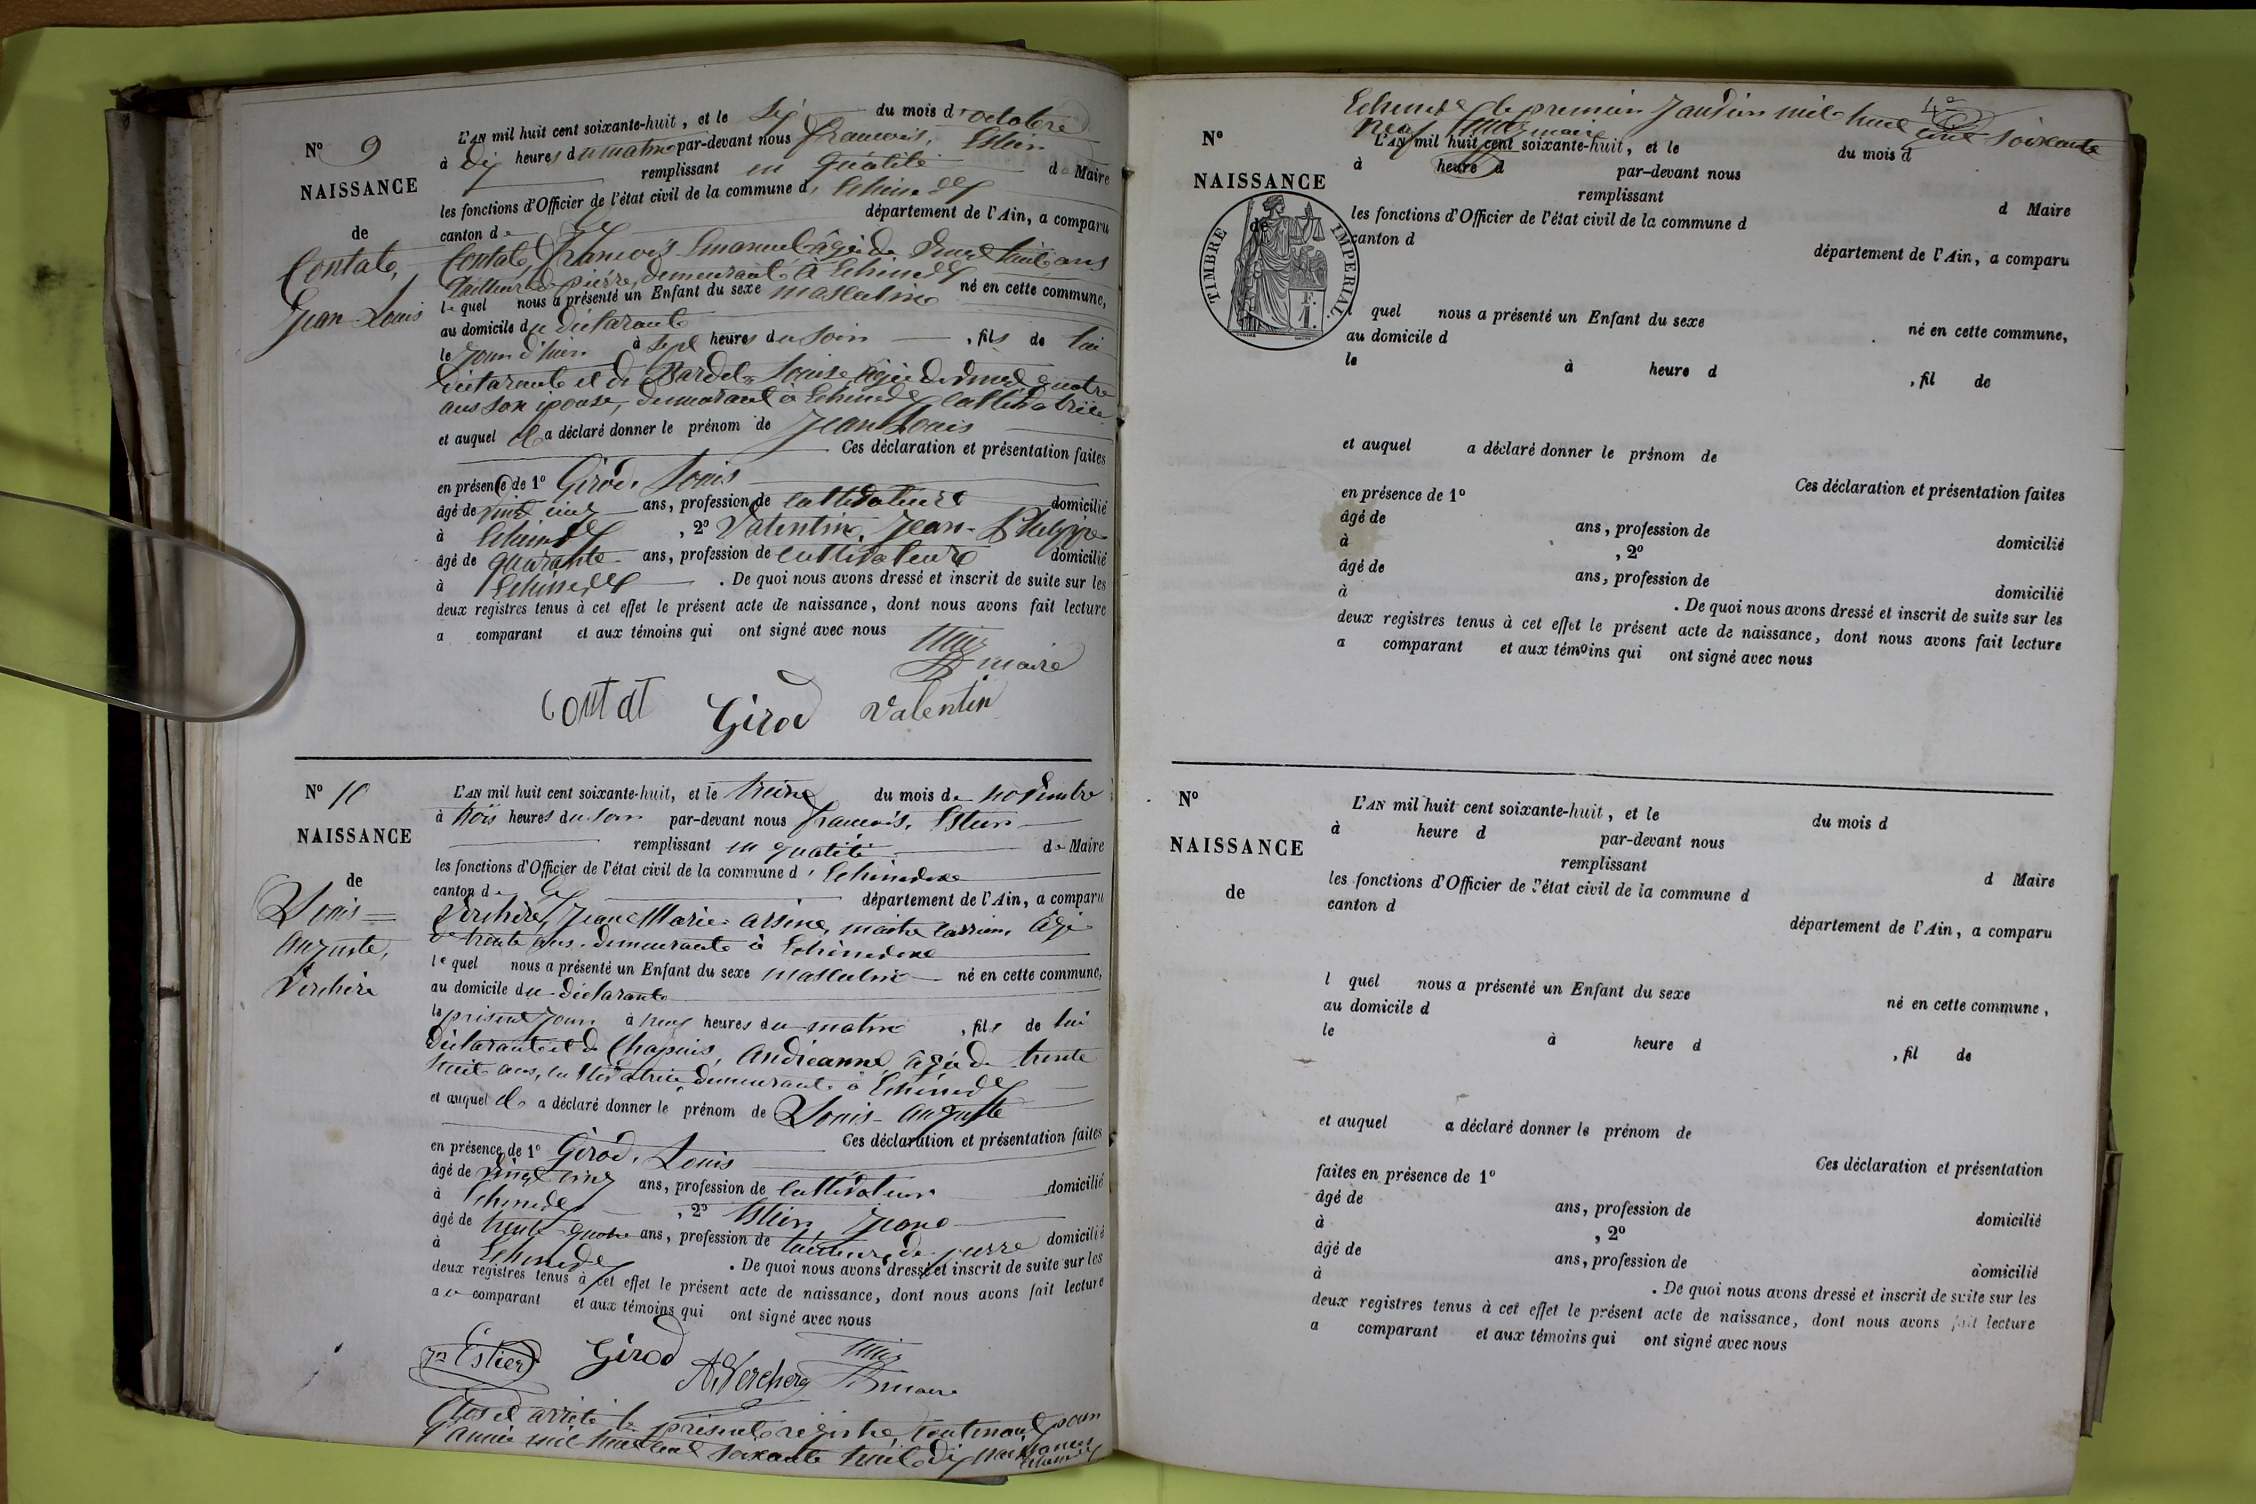 N° 9
NAISSANCE
de
Contat,
Jean Louis
L'AN mil huit cent soixante-huit, et le six du mois d'octobre
à dix heures du matin par-devant nous françois, Estier
remplissant en qualité de Maire
les fonctions d'Officier de l'état civil de la commune d'Echenevex
canton de Gex département de l'Ain, a comparu
Contat, François Emanuel âgé de vingt huit ans
tailleur de pierre, demeurant à Echenevex
le quel nous a présenté un Enfant du sexe masculin né en cette commune,
au domicile du déclarant
le jour d'hier à sept heures du soir, fils de lui
déclarant et de Bardet, Louise, âgée de vingt quatre
ans son épouse, demeurant à Echenevex cultivatrice
et auquel il a déclaré donner le prénom de Jean Louis
Ces déclaration et présentation faites
en présence de 1° Girod, Louis
âgé de vint cinq ans, profession de cultivateur domicilié
à Echenevex, 2° Valentin, Jean-Philippe
âgé de quarante ans, profession de cultivateur domicilié
à Echenevex. De quoi nous avons dressé et inscrit de suite sur les
deux registres tenus à cet effet le présent acte de naissance, dont nous avons fait lecture
a comparant et aux témoins qui ont signé avec nous
maire
Contat Girod Valentin
N° 10
NAISSANCE
de
Louis
Auguste,
Verchère
L'AN mil huit cent soixante-huit, et le treize du mois de novembre
à trois heures du soir par-devant nous françois, Estier
remplissant en qualité de Maire
les fonctions d'Officier de l'état civil de la commune d'Echenevex
canton de Gex département de l'Ain, a comparu
Verchère, Jean Marie arsine, maitre carrier, âgé
de trente ans, demeurant à Echenevex
le quel nous a présenté un Enfant du sexe masculin né en cette commune,
au domicile du déclarant
le présent jour à neuf heures du matin, fils de lui
déclarant et de Chapuis, Andréanne, âgée de trente
huit ans, cultivatrice, demeurant à Echenevex
et auquel il a déclaré donner le prénom de Louis-Auguste
Ces déclaration et présentation faites
en présence de 1° Girod, Louis
âgé de vingt cinq ans, profession de cultivateur domicilié
à Echenevex, 2° Estier, Jean
âgé de trente-quatre ans, profession de tailleur de pierre domicilié
à Echenevex. De quoi nous avons dressé et inscrit de suite sur les
deux registres tenus à cet effet le présent acte de naissance, dont nous avons fait lecture
au comparant et aux témoins qui ont signé avec nous
Jn Estier Girod A. Verchere maire
Clos et arrêté le présent registre, contenant pour
l'année mil huit cent soixante huit dix naissances
Echenevex le premier Janvier mil huit cent soixante
neuf maire
N°
NAISSANCE
de
TIMBRE IMPERIAL.
L'AN mil huit cent soixante-huit, et le du mois d
à heure d par-devant nous
remplissant d Maire
les fonctions d'Officier de l'état civil de la commune d
canton d département de l'Ain, a comparu
l quel nous a présenté un Enfant du sexe né en cette commune,
au domicile d
le à heure d , fil de
et auquel a déclaré donner le prénom de
Ces déclaration et présentation faites
en présence de 1°
âgé de ans, profession de domicilié
à , 2°
âgé de ans, profession de domicilié
à . De quoi nous avons dressé et inscrit de suite sur les
deux registres tenus à cet effet le présent acte de naissance, dont nous avons fait lecture
a comparant et aux témoins qui ont signé avec nous
N°
NAISSANCE
de
L'AN mil huit cent soixante-huit, et le du mois d
à heure d par-devant nous
remplissant d Maire
les fonctions d'Officier de l'état civil de la commune d
canton d département de l'Ain, a comparu
l quel nous a présenté un Enfant du sexe né en cette commune,
au domicile d
le à heure d , fil de
et auquel a déclaré donner le prénom de
Ces déclaration et présentation
faites en présence de 1°
âgé de ans, profession de domicilié
à , 2°
âgé de ans, profession de domicilié
à . De quoi nous avons dressé et inscrit de suite sur les
deux registres tenus à cet effet le présent acte de naissance, dont nous avons fait lecture
a comparant et aux témoins qui ont signé avec nous